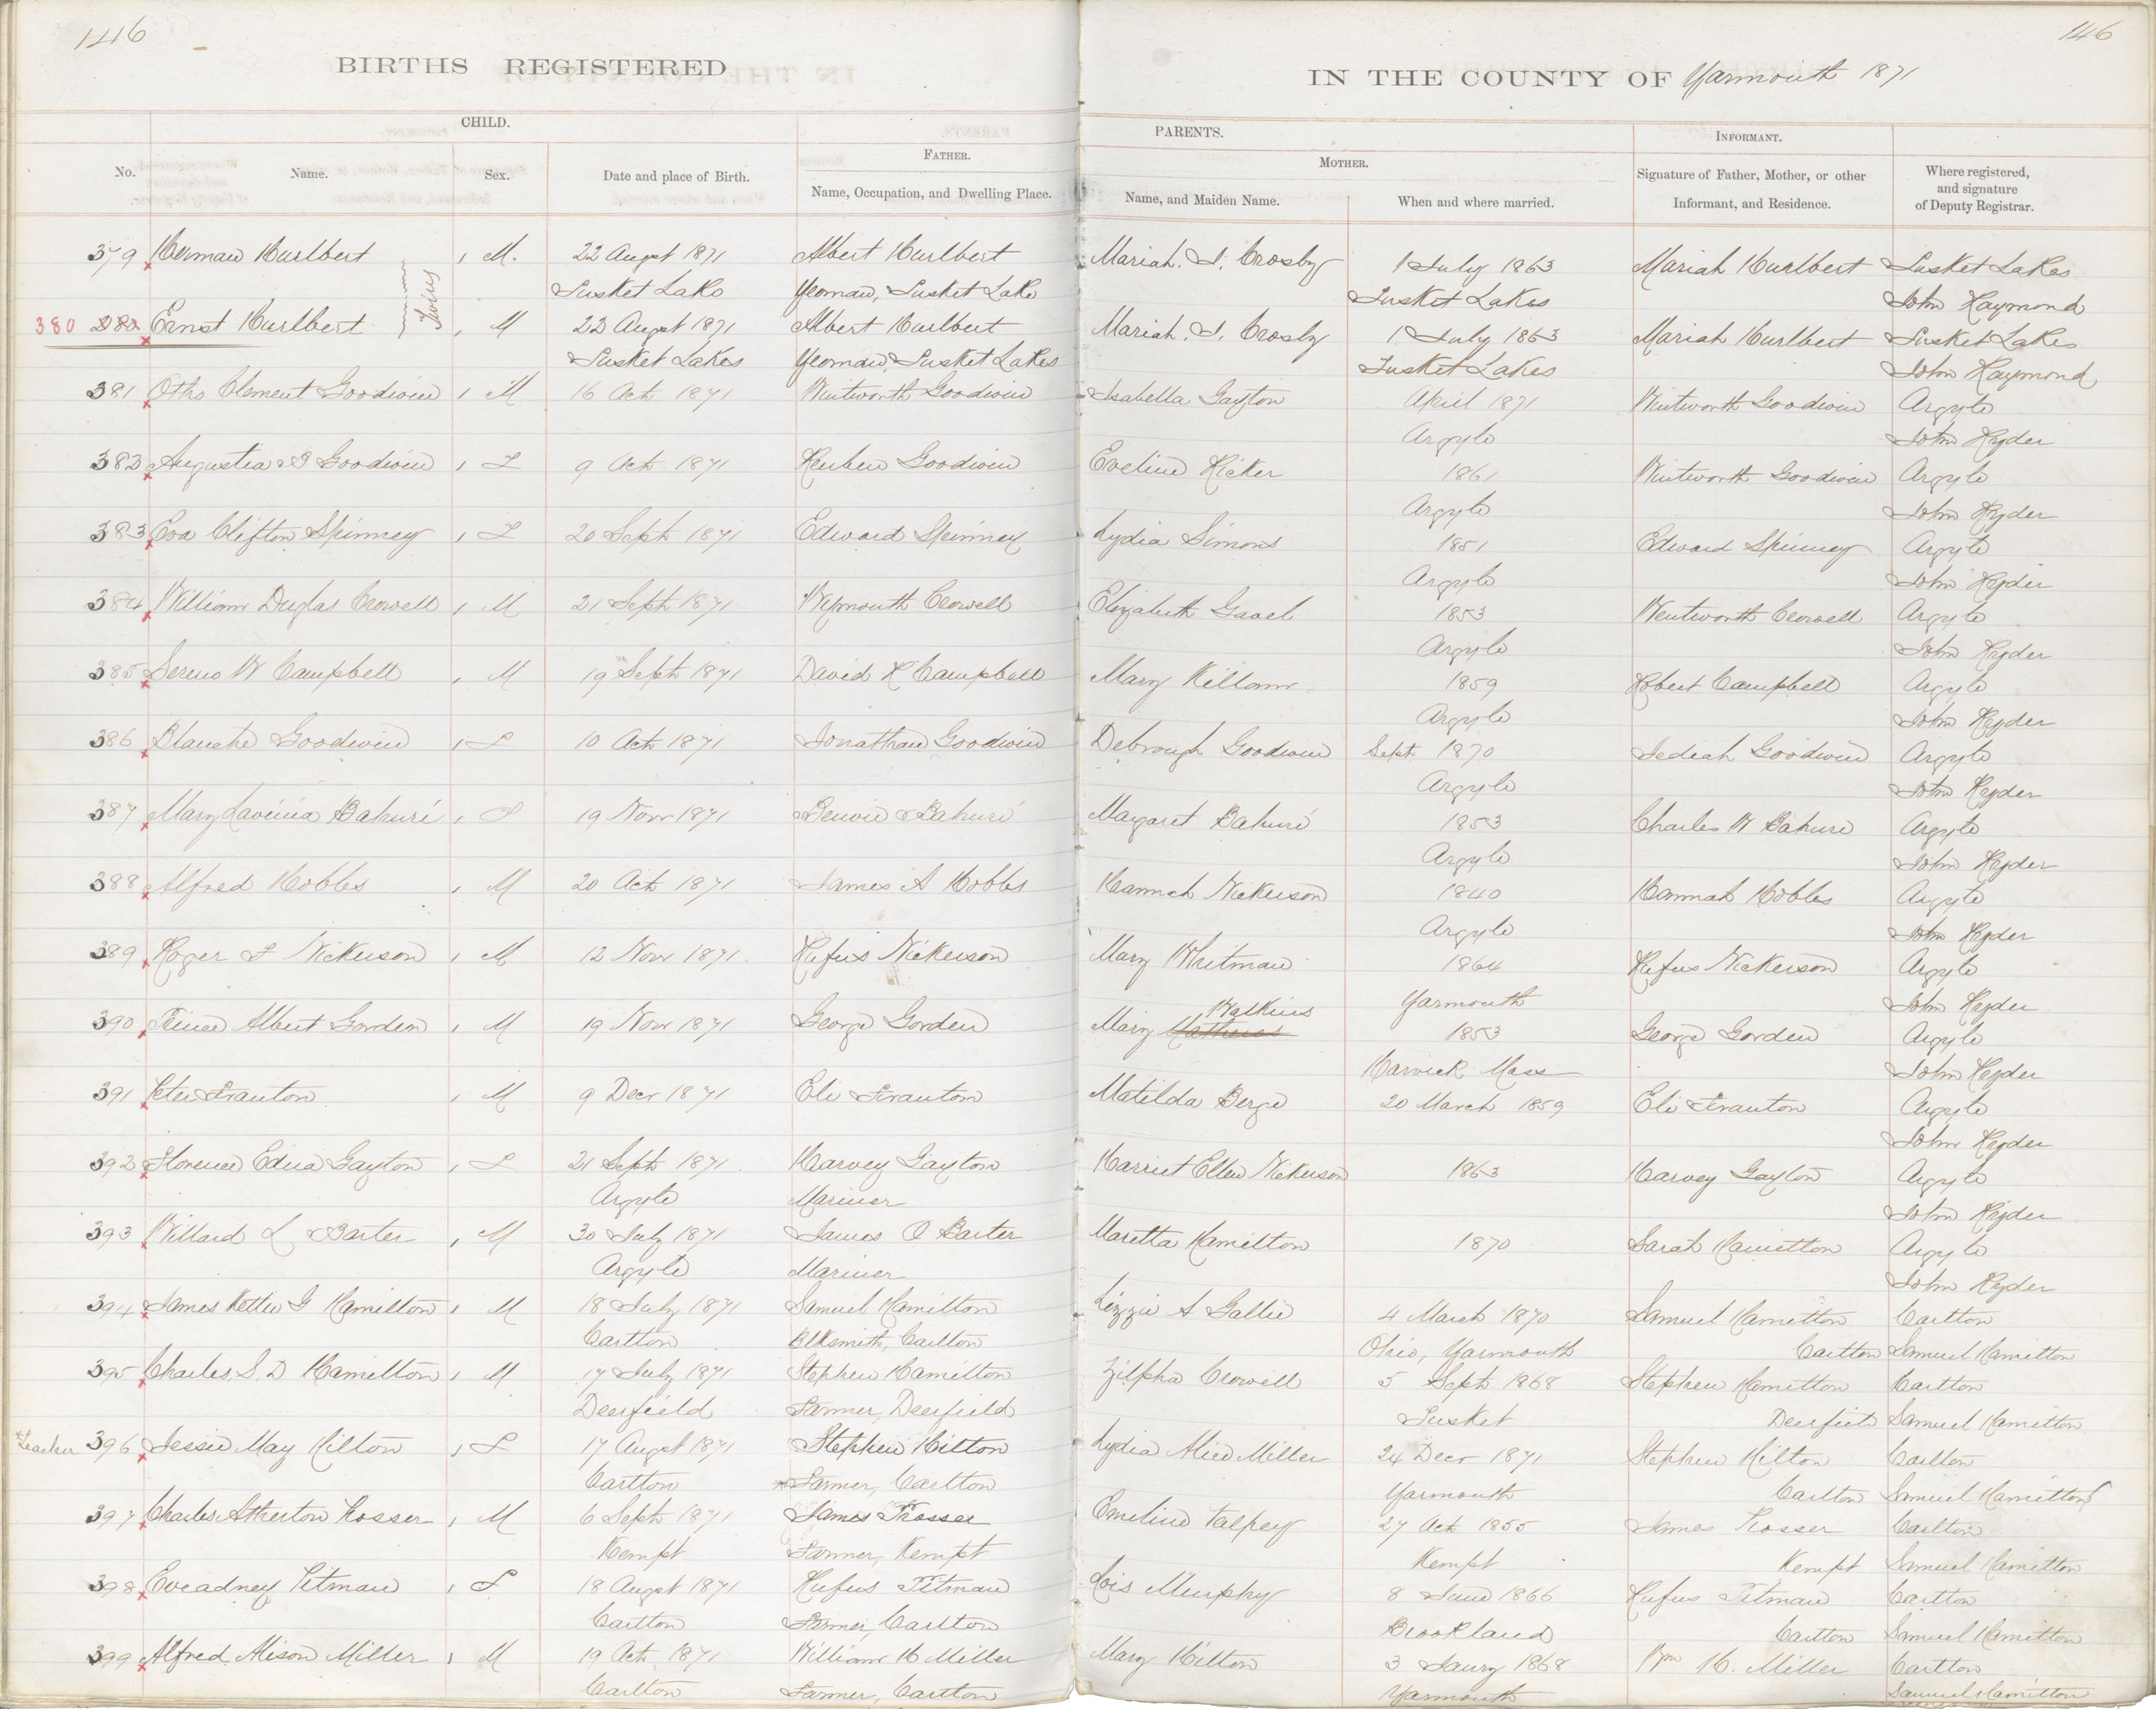 146
146
BIRTHS REGISTERED
IN THE COUNTY OF Yarmouth 1871
CHILD.
PARENTS.
INFORMANT.
No.
Name.
Sex.
Date and place of Birth.
FATHER.
Name, Occupation, and Dwelling Place.
MOTHER.
Name, and Maiden Name.
When and where married.
Signature of Father, Mother, or other
Informant, and Residence.
Where registered,
and signature
of Deputy Registrar.
379 Herman Hurlbert M. 22 August 1871 Albert Hurlbert Mariah. S. Crosby 1 July 1863 Mariah Hurlbert Tusket Lakes
Tusket Lake Yeoman, Tusket Lake Tusket Lakes John Raymond
Twins
380 Ernst Hurlbert M 22 August 1871 Albert Hurlbert Mariah. S. Crosby 1 July 1863 Mariah Hurlbert Tusket Lakes
Tusket Lakes Yeoman, Tusket Lakes Tusket Lakes John Raymond
381 Otho Clement Goodwin M 16 Oct 1871 Wintworth Goodwin Isabella Gayton April 1871 Wintworth Goodwin Argyle
Argyle John Ryder
382 Augustia Goodwin F 9 Oct 1871 Reuben Goodwin Eveline Ricker 1861 Wintworth Goodwin Argyle
Argyle John Ryder
383 Eva Clifton Spinney F 20 Sept 1871 Edward Spinney Lydia Simons 1851 Edward Spinney Argyle
Argyle John Ryder
384 William Duglas Crowell M 21 Sept 1871 Weymouth Crowell Elizabeth Gavel 1853 Wentworth Crowell Argyle
Argyle John Ryder
385 Sereno W Campbell M 19 Sept 1871 David R Campbell Mary Killam 1859 Robert Campbell Argyle
Argyle John Ryder
386 Blanche Goodwin F 10 Oct 1871 Jonathan Goodwin Debrough Goodwin Sept 1870 Jediah Goodwin Argyle
Argyle John Ryder
387 Mary Lavinia Bahuré F 19 Nov 1871 Bahuré Margaret Bahuré 1853 Charles W Bahure Argyle
Argyle John Ryder
388 Alfred Hobbs M 20 Oct 1871 James A Hobbs Hannah Nickerson 1840 Hannah Hobbs Argyle
Argyle John Ryder
389 Roger F Nickerson M 12 Nov 1871 Rufus Nickerson Mary Whitman 1864 Rufus Nickerson Argyle
Yarmouth John Ryder
390 Albert Gorden M 19 Nov 1871 George Gorden Mary Watkins 1853 George Gorden Argyle
Harwick Mass John Ryder
391 Peter Franton M 9 Decr 1871 Eli Franton Matilda Berge 20 March 1859 Eli Franton Argyle
John Ryder
392 Florence Edna Gayton F 21 Sept 1871 Harvey Gayton Harriet Ellen Nickerson 1863 Harvey Gayton Argyle
Argyle Mariner John Ryder
393 Willard L Barter M 30 July 1871 James O Barter Maretta Hamilton 1870 Sarah Hamilton Argyle
Argyle Mariner John Ryder
394 James Kettie G Hamilton M 18 July 1871 Samuel Hamilton Lizzie A Gallie 4 March 1870 Samuel Hamilton Carlton
Carlton Blksmith, Carlton Ohio, Yarmouth Carlton Samuel Hamilton
395 Charles S. D Hamilton M 17 July 1871 Stephen Hamilton Zilpha Crowell 5 Sept 1868 Stephen Hamilton Carlton
Deerfield Farmer, Deerfield Tusket Deerfield Samuel Hamilton
*Teacher 396 Jessie May Hilton F 17 August 1871 Stephen Hilton Lydia Alice Miller 24 Decr 1871 Stephen Hilton Carlton
Carlton *Farmer, Carlton Yarmouth Carlton Samuel Hamilton
397 Charles Atherton Prosser M 6 Sept 1871 James Prosser Emeline Talpey 27 Oct 1855 James Prosser Carlton
Kempt Farmer, Kempt Kempt Kempt Samuel Hamilton
398 Eveadney Pitman F 18 August 1871 Rufus Pitman Lois Murphy 8 June 1866 Rufus Pitman Carlton
Carlton Farmer, Carlton Brookland Carlton Samuel Hamilton
399 Alfred Alison Miller M 19 Oct 1871 William H Miller Mary Hilton 3 Jaury 1868 Wm H. Miller Carlton
Carlton Farmer, Carlton Yarmouth Samuel Hamilton